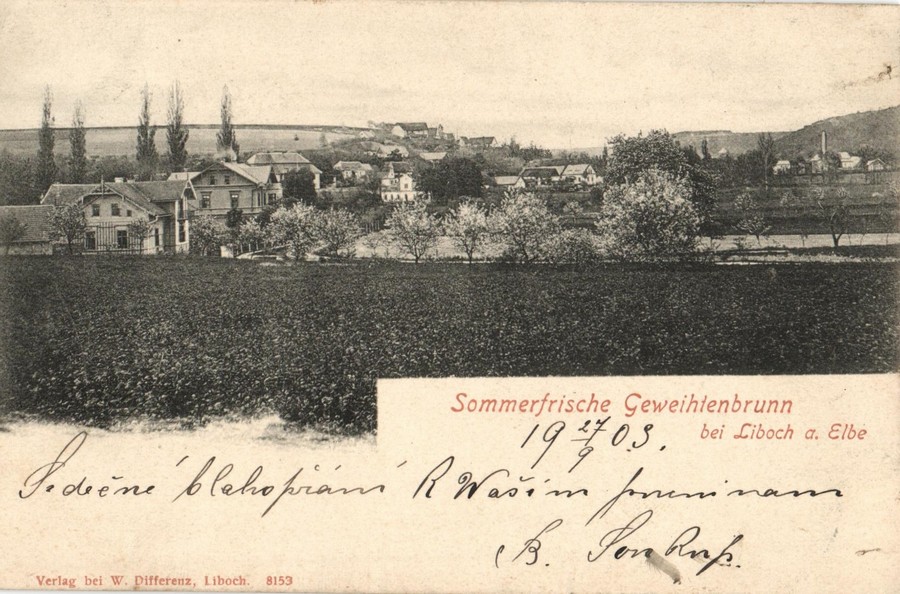 Sommerfrische Geweihtenbrunn
bei Liboch a. Elbe
19 27/9 03.
Srdečné blahopřání k Wašim
B.
Verlag bei W. Differenz, Liboch. 8153